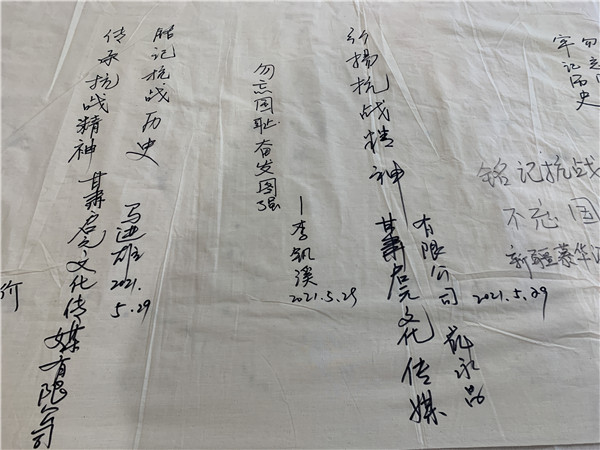 勿忘国
牢记历史
铭记抗战
不忘国
新疆慕华
2021.5.29
弘扬抗战精神 甘肃启元文化传媒
有限公司
永昌
勿忘国耻 奋发图强
—李 溪
2021.5.29
铭记抗战历史
传承抗战精神 甘肃启元文化传媒有限公司
马进雄
2021.
5.29
价